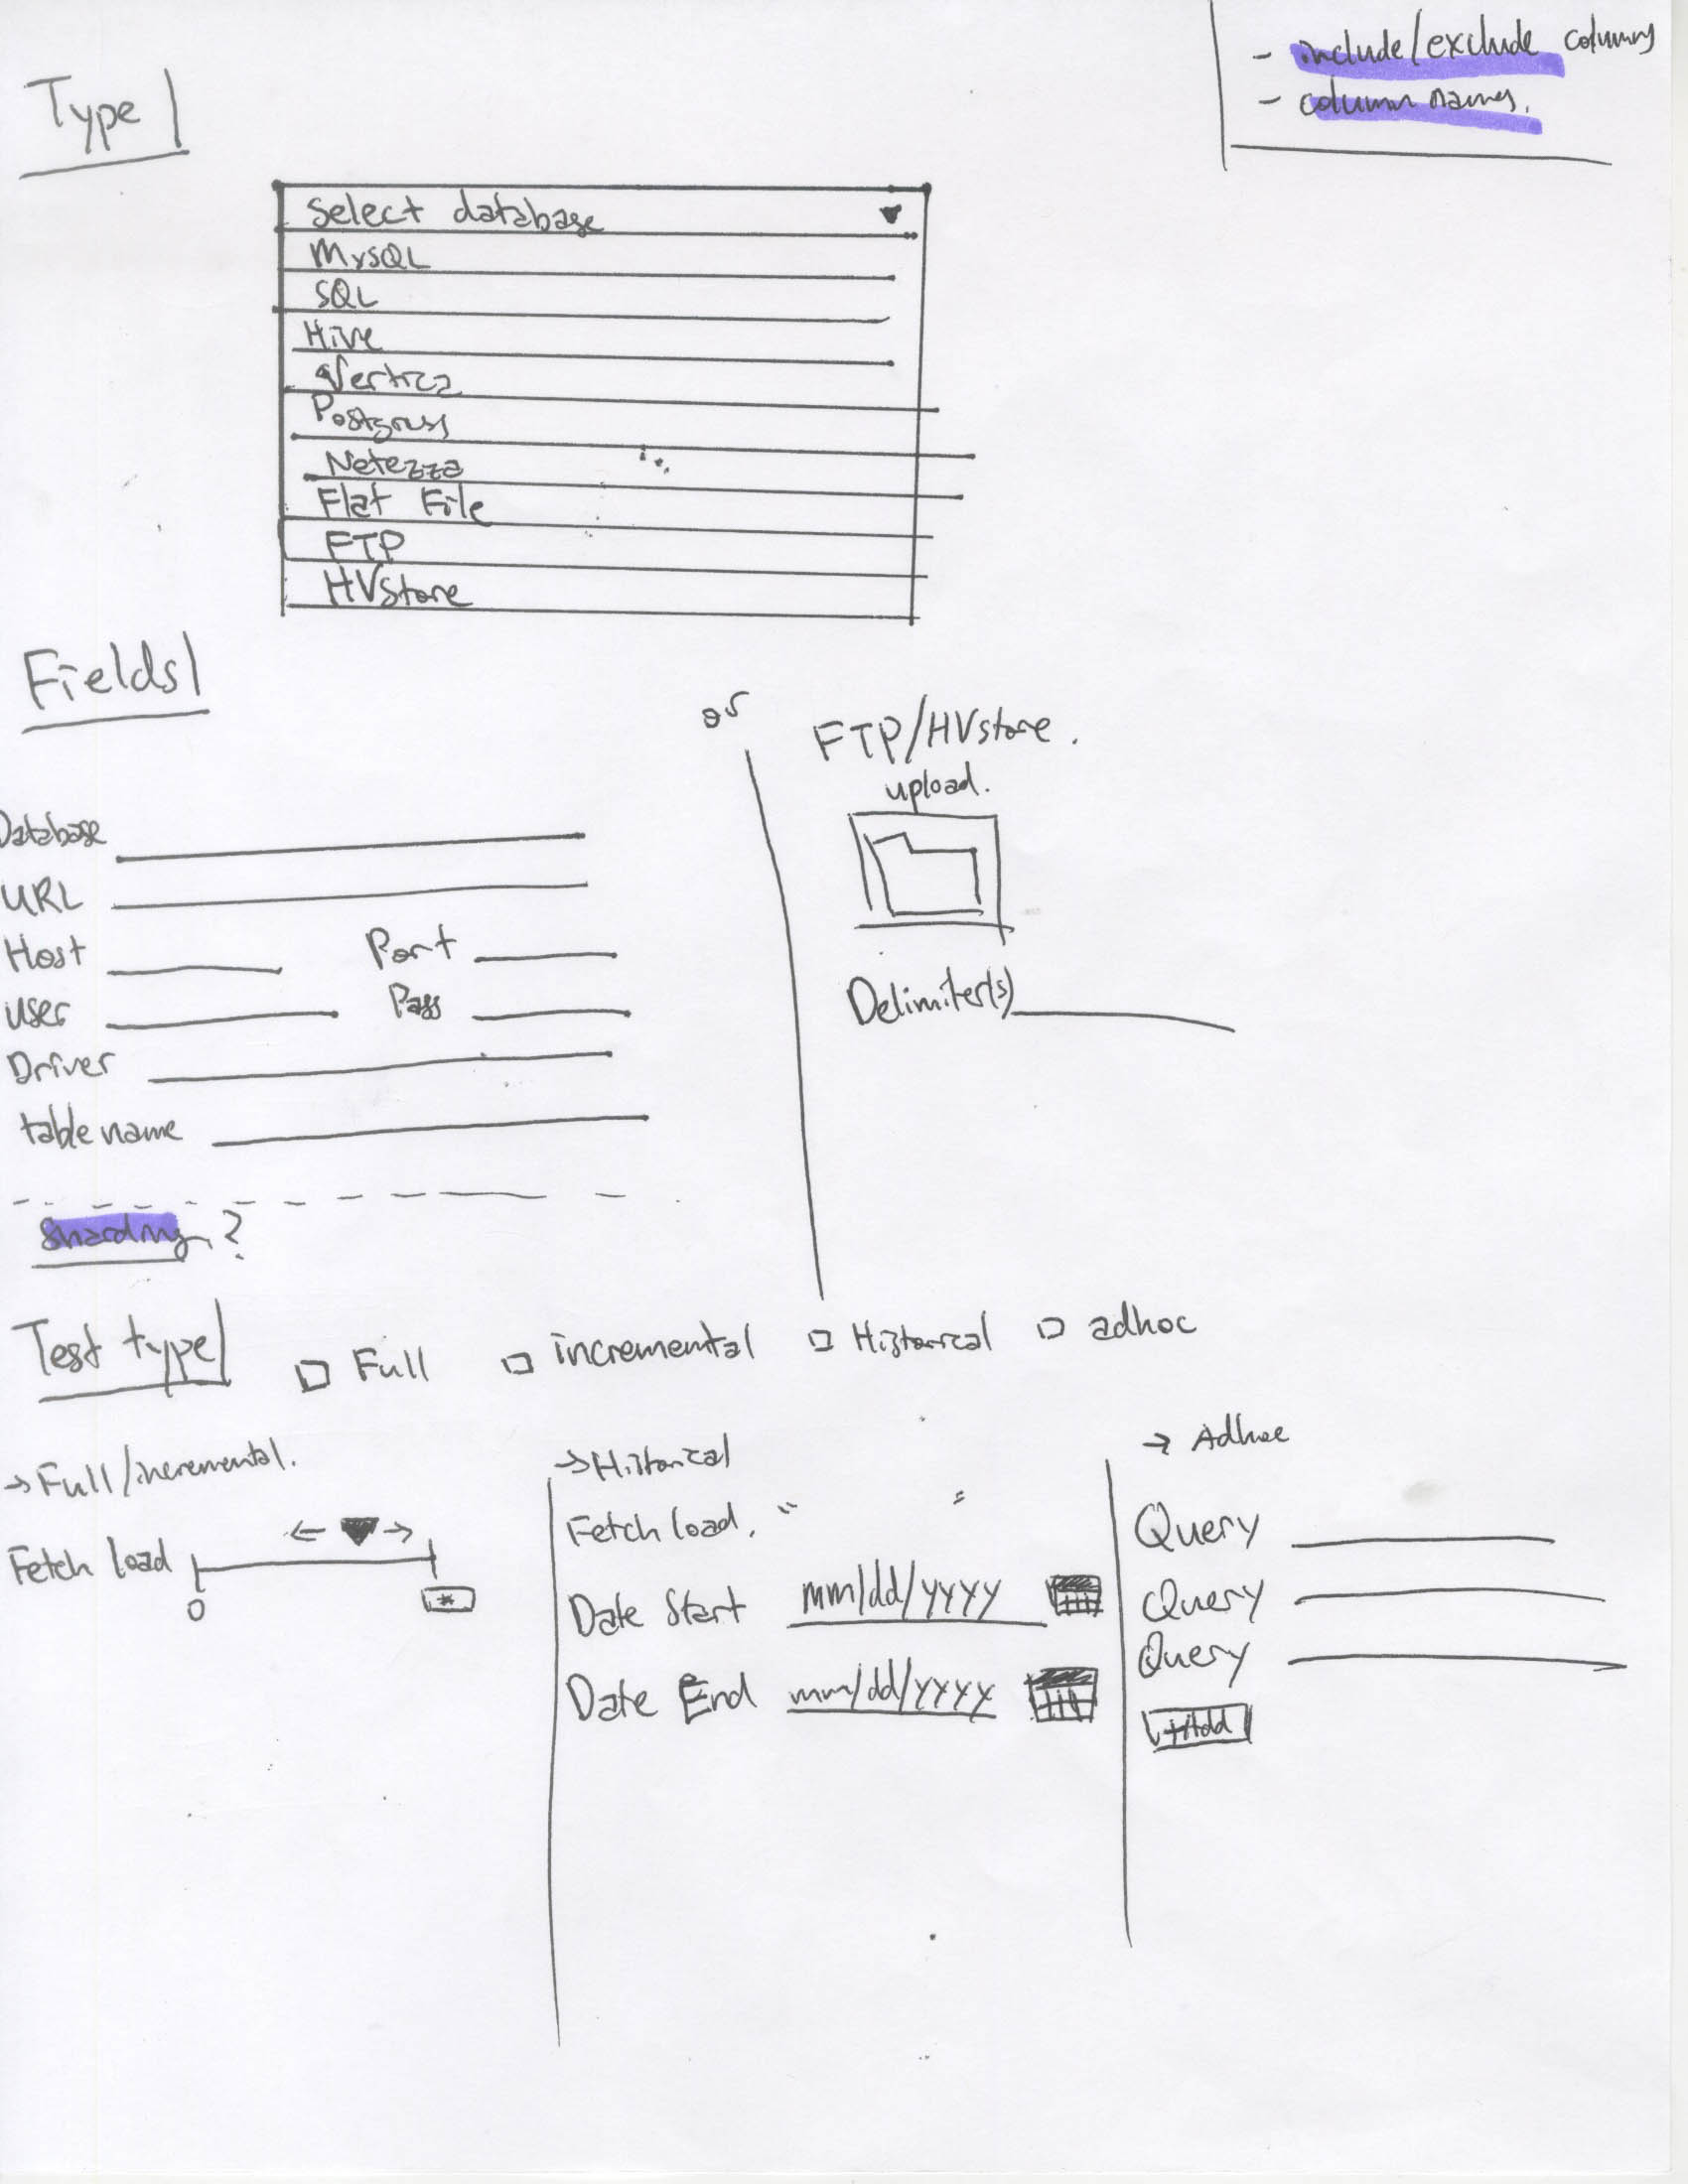 - include/exclude columns
- column names.
Type
Select database
MySQL
SQL
Hive
Vertica
Postgress
Netezza
Flat File
FTP
HVstore
Fields
or
FTP/HVstore.
upload.
Database
URL
Host Port
User Pass
Driver
table name
Delimiter(s)
Sharding?
Test type Full incremental Historical adhoc
→ Full/incremental.
Fetch load
0 *
→ Historical
Fetch load. " "
Date Start mm/dd/yyyy
Date End mm/dd/yyyy
→ Adhoc
Query
Query
Query
+Add